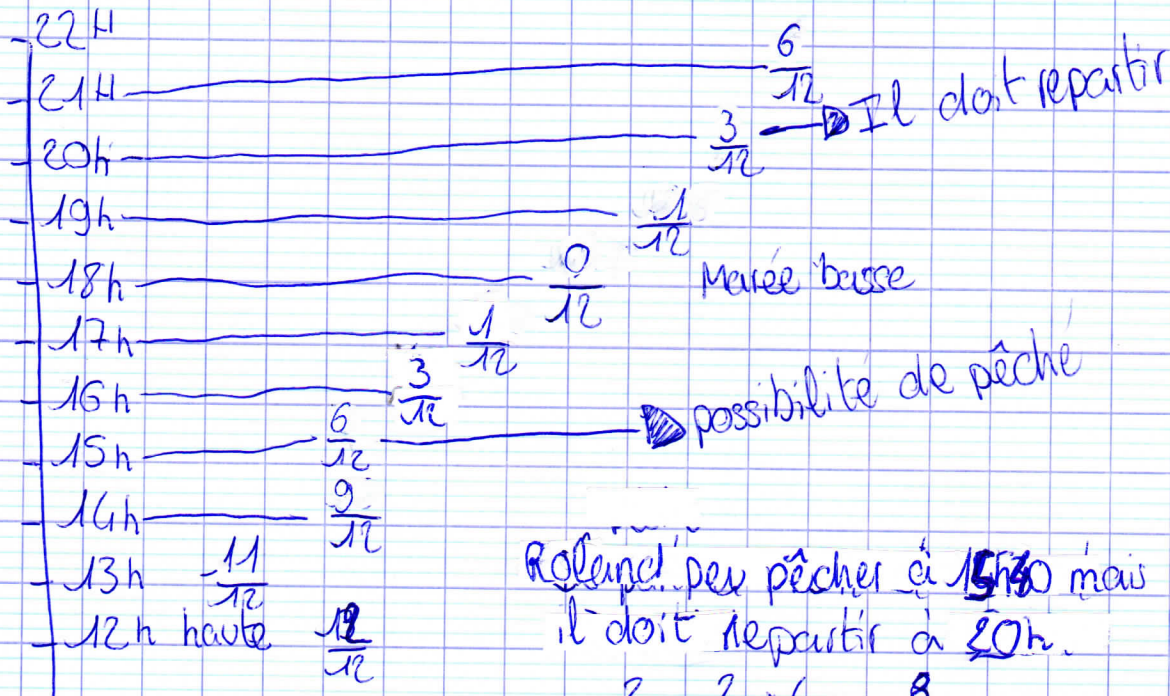 22H
21H 6/12
20h 3/12 Il doit repartir
19h 1/12
18h 0/12 Marée basse
17h 1/12
16h 3/12
15h 6/12 possibilité de pêché
14h 9/12
13h 11/12
12h haute 12/12
Roland peu pêcher à mais
il doit repartir à 20h.